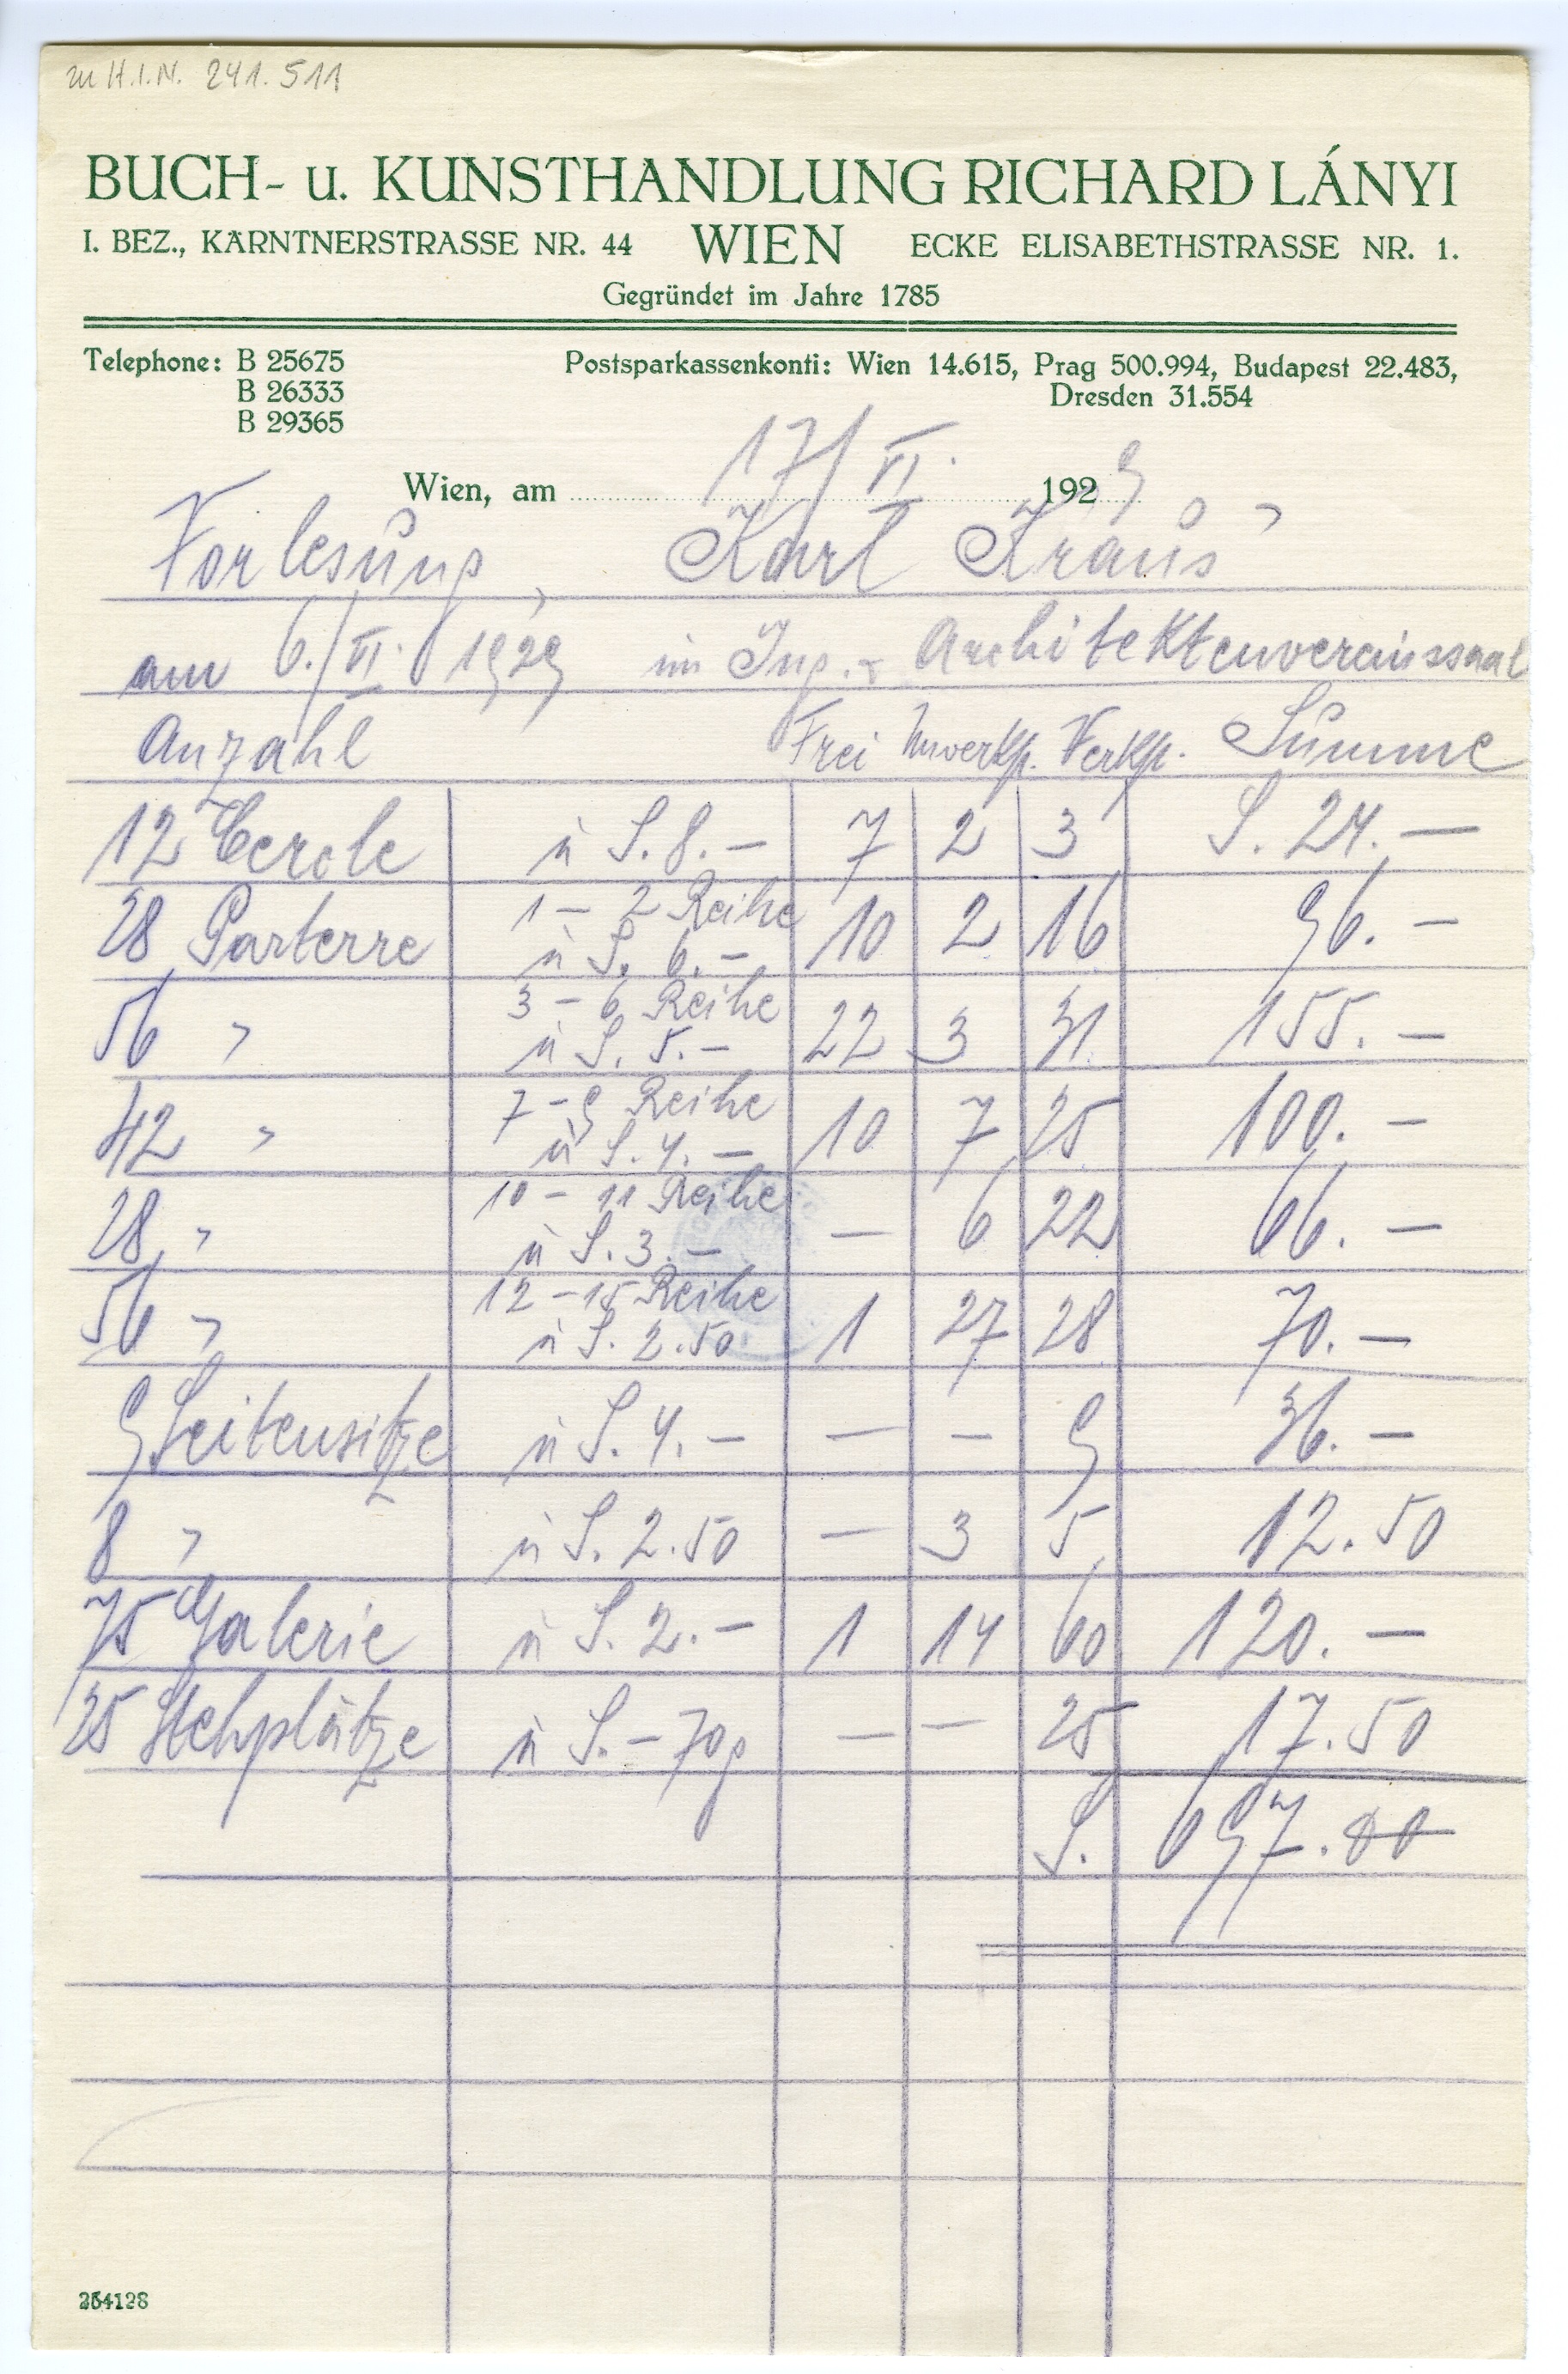 zu H.I.N. 241.511
BUCH- u. KUNSTHANDLUNG RICHARD LÁNYI
I. BEZ., KÄRNTNERSTRASSE NR. 44 WIEN ECKE ELISABETHSTRASSE NR. 1.
Gegründet im Jahre 1785
Telephone: B 25675 Postsparkassenkonti: Wien 14.615, Prag 500.994, Budapest 22.483,
B 26333 Dresden 31.554
B 29365
Wien, am 17/VI. 1929
Vorlesung, „Karl Kraus"
am 6./VI. 1929 im Ing. & Architektenvereinssaal
Anzahl Frei Unverkf. Verkf. Summe
12 Cercle à S. 8.— 7 2 3 S. 24.—
28 Parterre 1 – 2 Reihe à S. 6.— 10 2 16 96.—
56 " 3 – 6 Reihe à S. 5.— 22 3 31 155.—
42 " 7 – 9 Reihe à S. 4.— 10 7 25 100.—
28 " 10 – 11 Reihe à S. 3.— — 6 22 66.—
56 " 12 – 15 Reihe à S. 2.50 1 27 28 70.—
9 Seitensitze à S. 4.— — — 9 36.—
8 " à S. 2.50 — 3 5 12.50
75 Galerie à S. 2.— 1 14 60 120.—
25 Stehplätze à S. – 70g — — 25 17.50
S. 697.00
254128